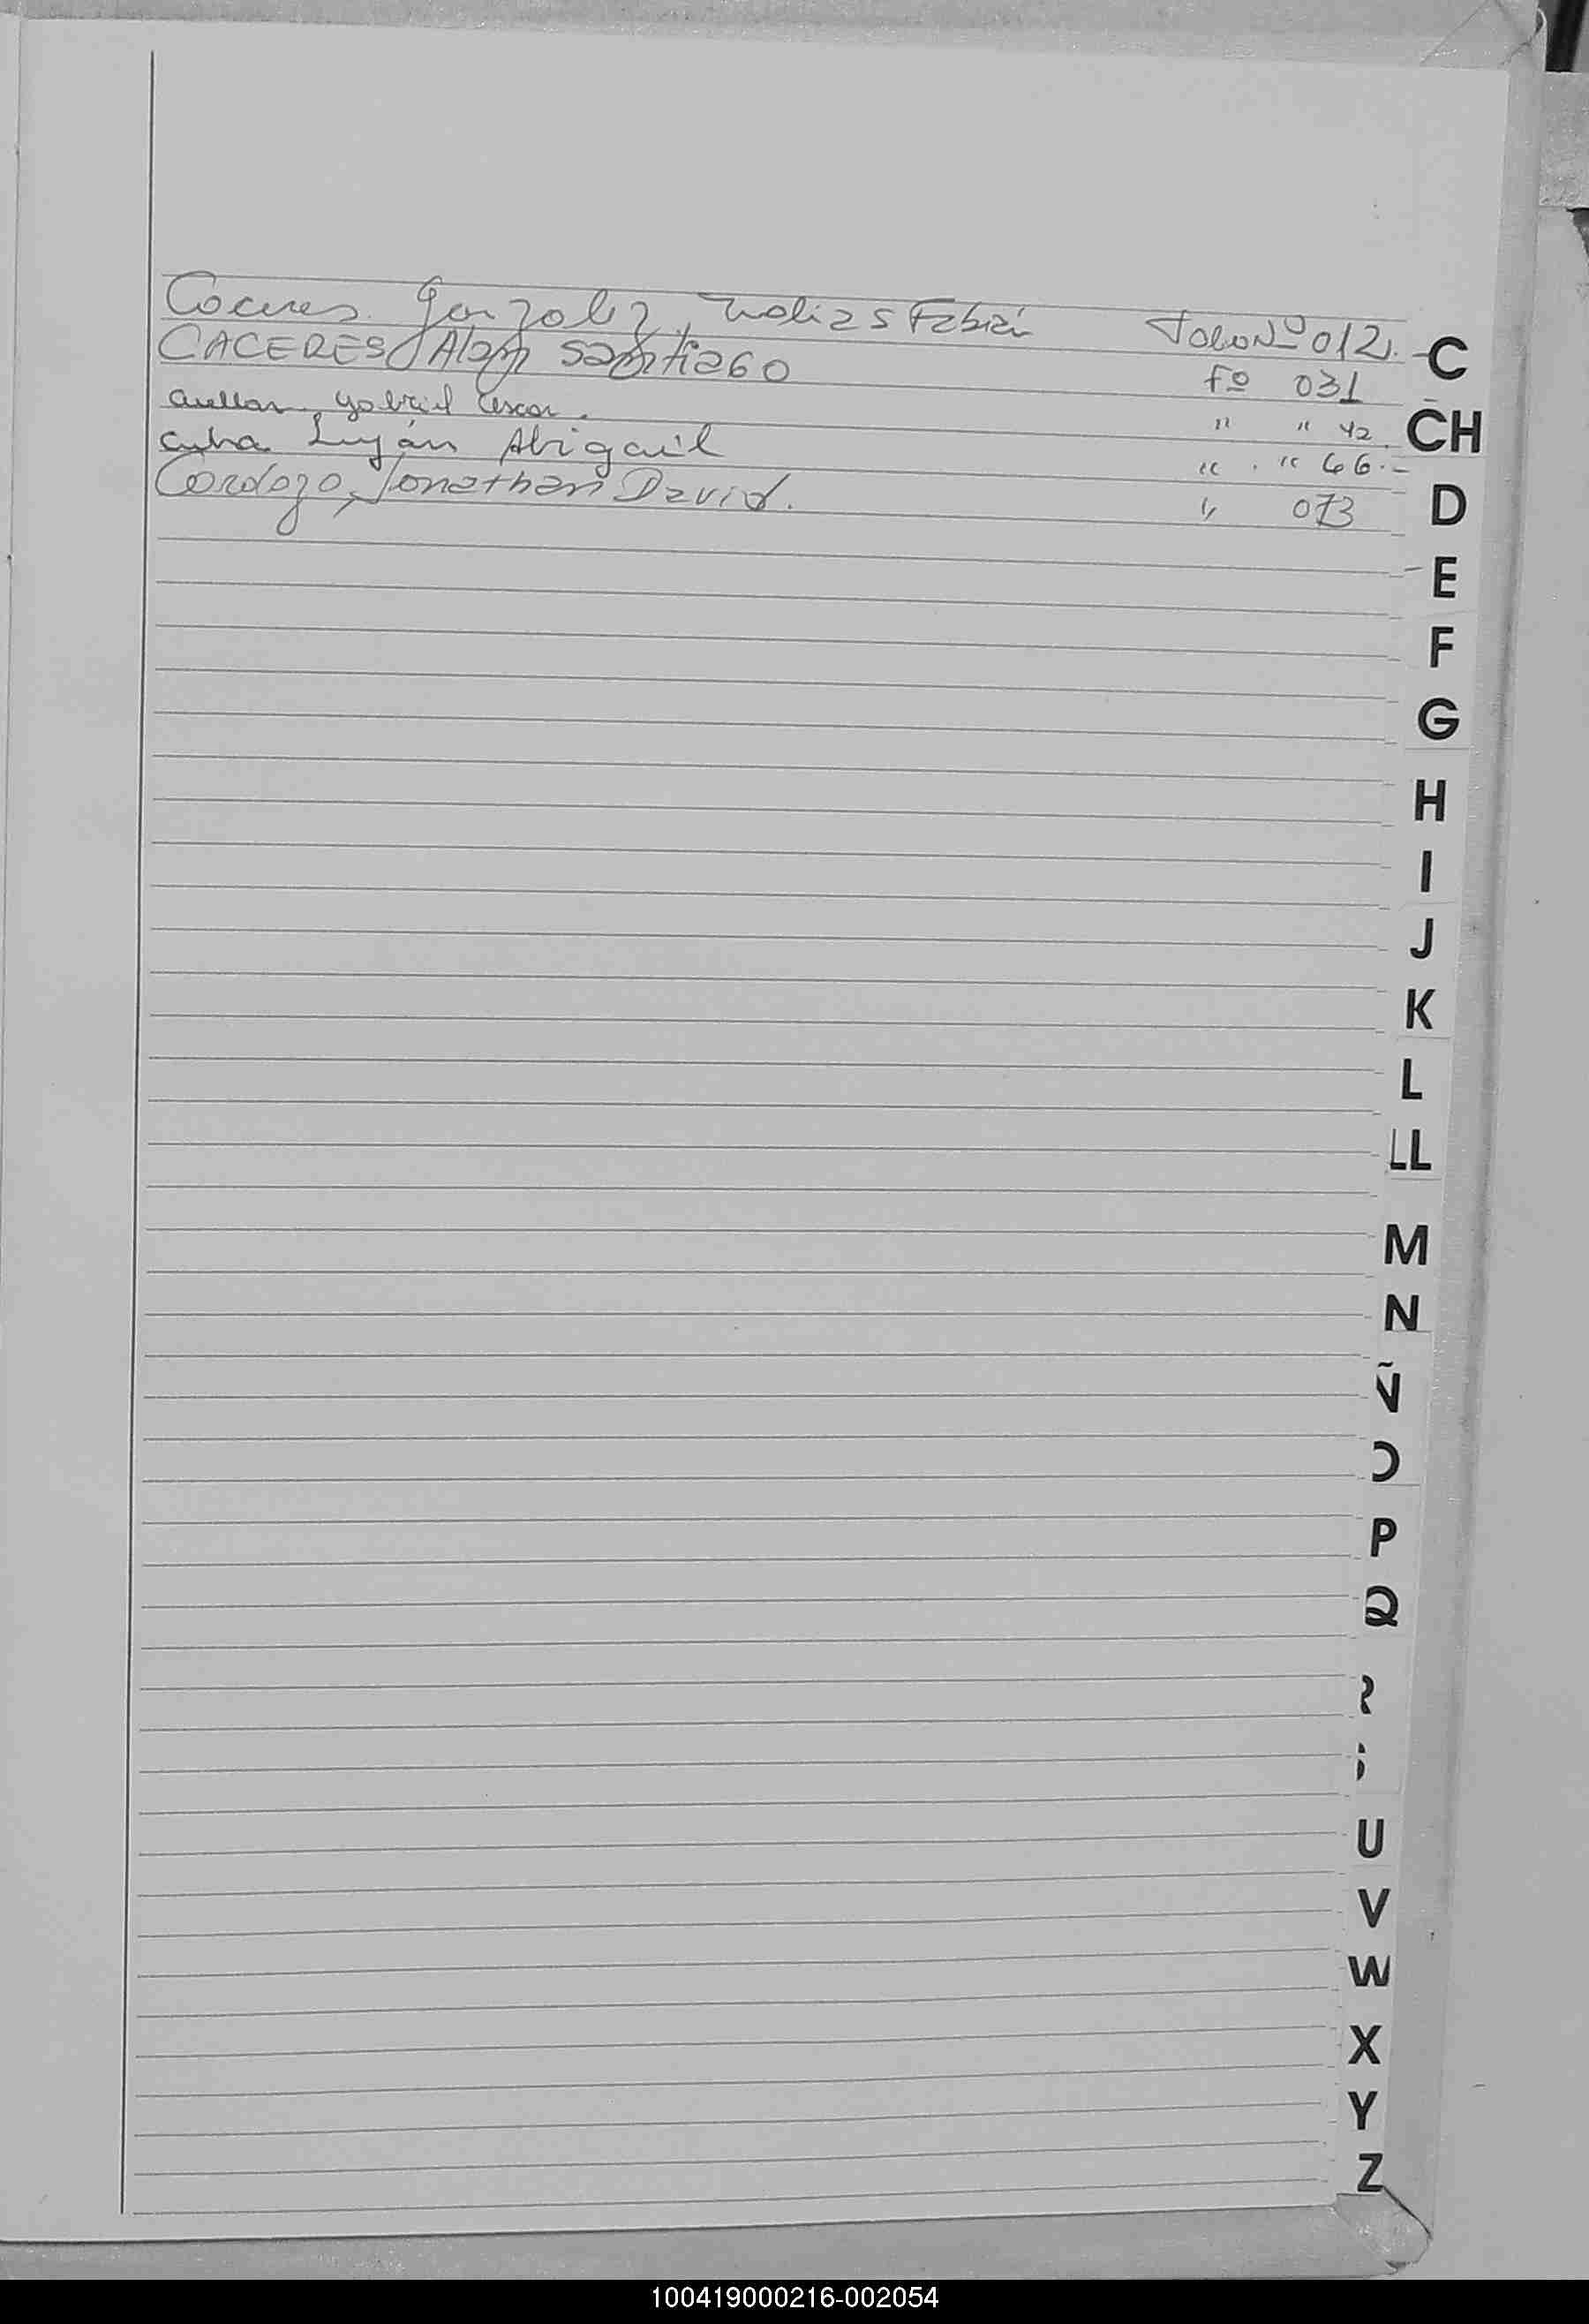 Caceres Gonzalez, Matias Fabián Folio Nº 012. C
CACERES, Alan Santiago Fº 031
Cuellar, Gabriel Cesar. " " 42. CH
Cuba Luján Abigail " . " 66.-
Cardozo, Jonathan David. " 073 D
E
F
G
H
I
J
K
L
LL
M
N
Ñ
O
P
Q
R
S
U
V
W
X
Y
Z
100419000216-002054